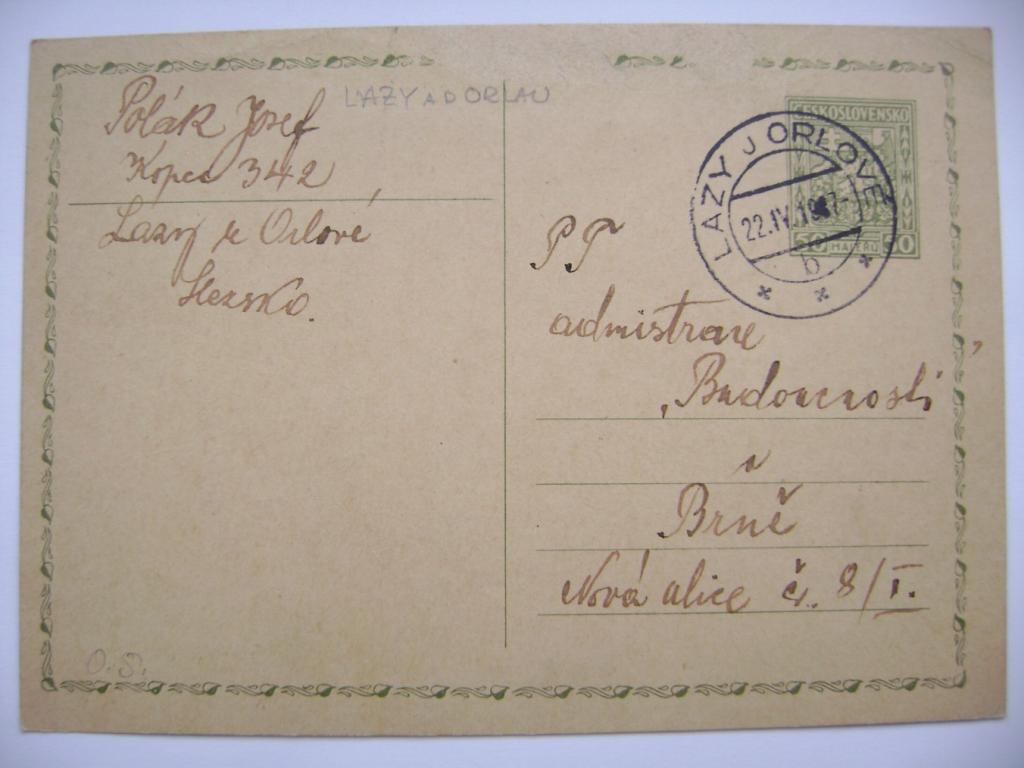 Polák Josef
Kopce 342
Lázy u Orlové
Slezsko.
LAZY AD ORLAU
ČESKOSLOVENSKO
50 HALÉŘŮ 50
LAZY J ORLOVÉ
22.IV.19 7-
b
PT
admistrace
„Budoucnosti"
v
Brně
Nová ulice č. 8/I.
O.S.